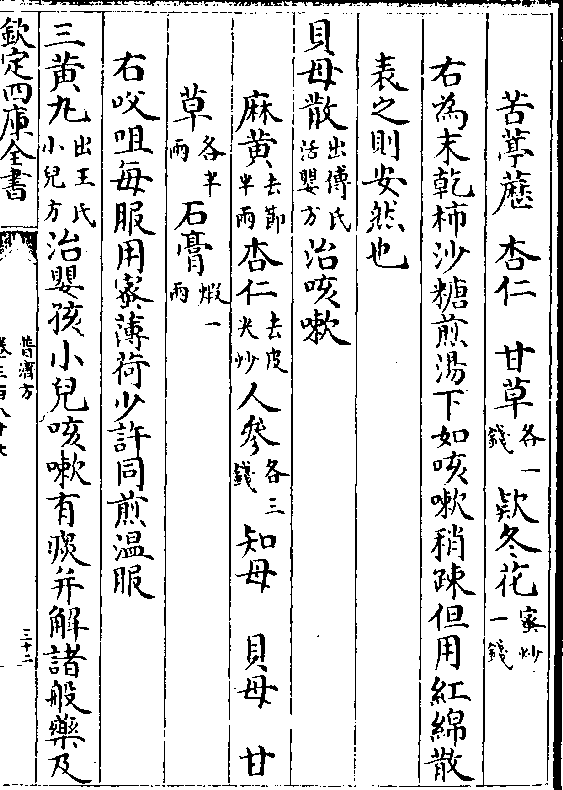 苦葶藶　杏仁　甘草各一錢　欵冬花蜜炒一錢
右為末乾柿沙糖煎湯下如咳嗽稍疎但用紅綿散
表之則安然也
貝母散出傅氏活嬰方治咳嗽
麻黄去節半兩杏仁去皮尖炒人參各三錢知母　貝母　甘
草各半兩石膏煅一兩
右㕮咀每服用蜜薄荷少許同煎温服
三黄丸出王氏小兒方治嬰孩小兒咳嗽有痰并解諸般藥及
欽定四庫全書
普濟方
三十二